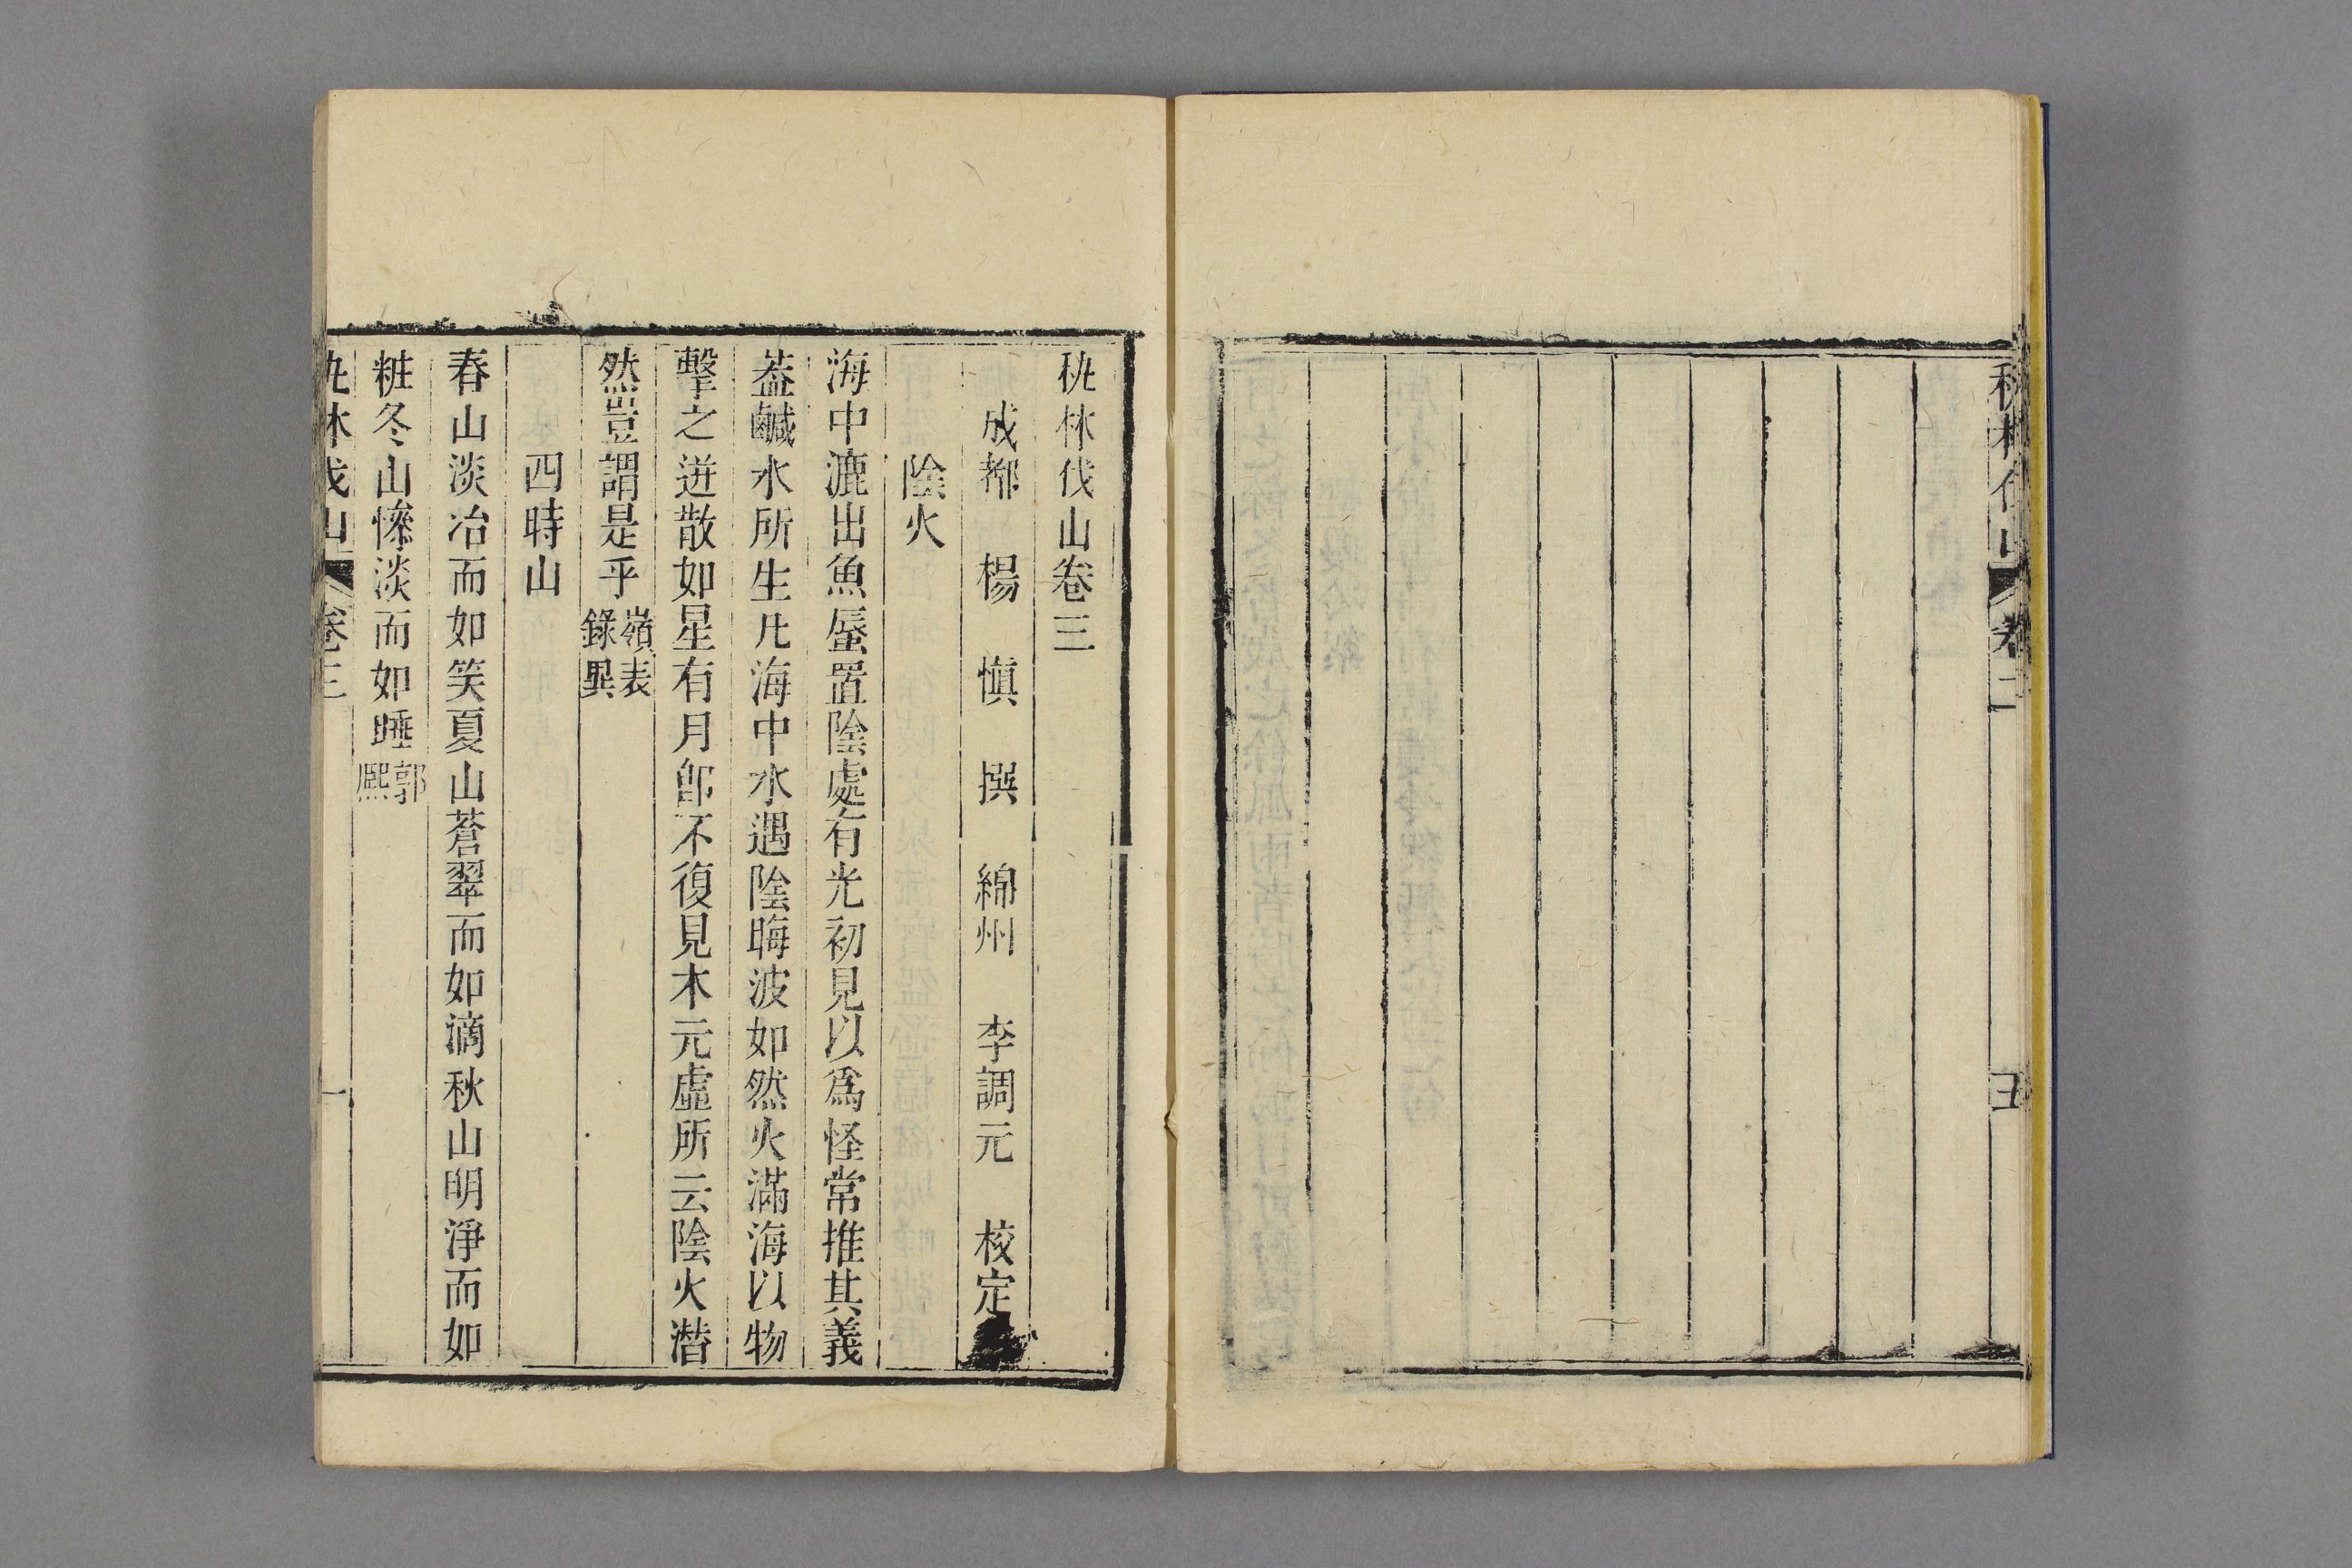 秇林伐山
卷二
五
秇林伐山卷三
成都 楊 慎 撰 綿州 李調元 校定
陰火
海中漉出魚蜃置陰處有光初見以爲怪常推其義
葢鹹水所生凡海中水遇陰晦波如然火滿海以物
擊之迸散如星有月卽不復見木元虛所云陰火潛
然豈謂是乎嶺表
錄異
四時山
春山淡冶而如笑夏山蒼翠而如滴秋山明淨而如
粧冬山慘淡而如睡郭
熙
秇林伐山
卷三
一